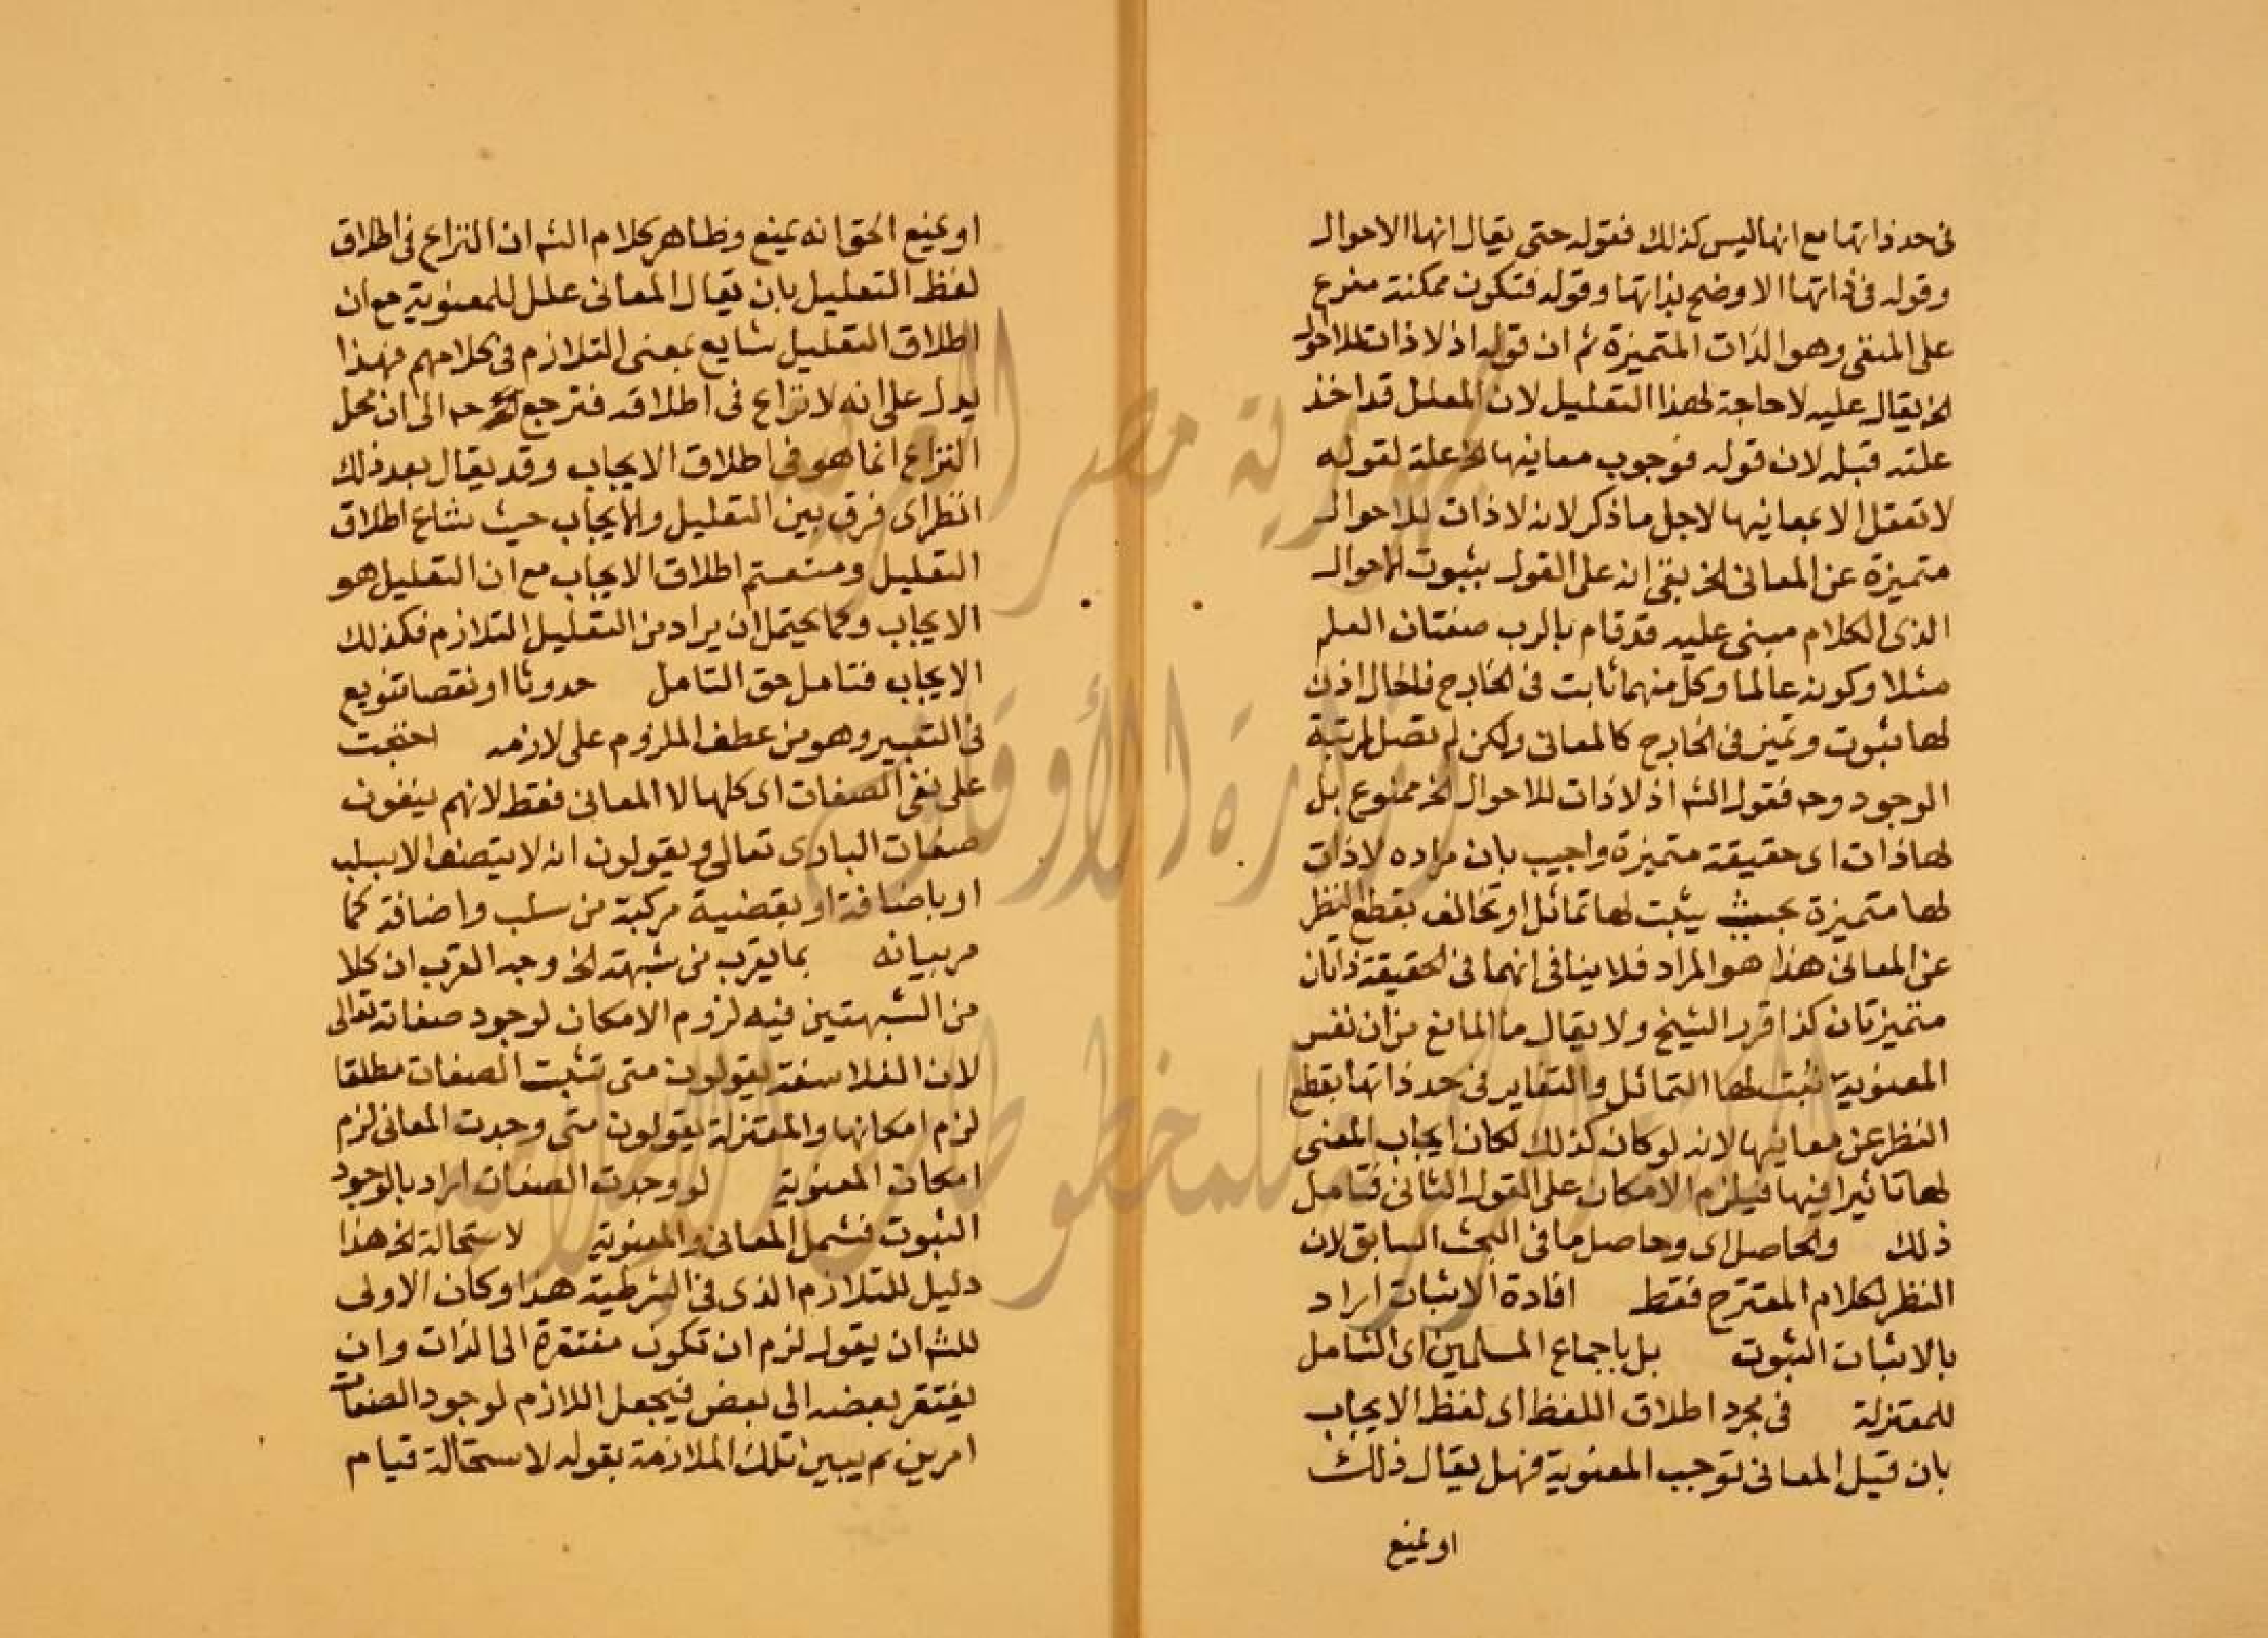 فى حد ذاتها مع انها ليس كذلك فقوله حتى يقال انها الاحوال
وقوله فى ذاتها الاوضح بذاتها وقوله فتكون ممكنة مفرع
على المنفى وهو الذات المتميزة ثم ان قوله اذ لا ذات للاحوال
الخ يقال عليه لا حاجة لهذا التعليل لان المعلل قد اخذ
علته قبله لان قوله فوجوب معانيها الخ علة لقوله
لا تعقل الا بمعانيها لاجل ما ذكر لانه لا ذات للاحوال
متميزة عن المعانى الخ بقى انه على القول بثبوت الاحوال
الذى الكلام مبنى عليه قد قام بالرب صفتان العلم
مثلا وكونه عالما وكل منهما ثابت فى الخارج فالحال اذن
لها ثبوت وتميز فى الخارج كالمعانى ولكن لم تصل لمرتبة
الوجود وح فقول الش اذ لا ذات للاحوال الخ ممنوع بل
لها ذات اى حقيقة متميزة واجيب بان مراده لا ذات
لها متميزة بحيث يثبت لها تماثل او تخالف بقطع النظر
عن المعانى هذا هو المراد فلا ينافى انهما فى الحقيقة ذاتان
متميزتان كذا قرر الشيخ ولا يقال ما المانع من ان نفس
المعنوية ثبت لها التماثل والتغاير فى حد ذاتها بقطع
النظر عن معانيها لانه لو كان كذلك لكان ايجاب المعنى
لها تاثيرا فيها فيلزم الامكان على القول الثانى فتامل
ذلك والحاصل اى وحاصل ما فى البحث السابق لان
النظر لكلام المقترح فقط افادة الاثبات اراد
بالاثبات الثبوت بل باجماع المسلمين اى الشامل
للمعتزلة فى مجرد اطلاق اللفظ اى لفظ الايجاب
بان قيل المعانى توجب المعنوية فهل يقال ذلك
او يمنع
او يمنع الحق انه يمنع وظاهر كلام الش ان النزاع فى اطلاق
لفظ التعليل بان يقال المعانى علل للمعنوية مع ان
اطلاق التعليل شايع بمعنى التلازم فى كلامهم فهذا
يدل على انه لا نزاع فى اطلاقه فترجع ح الى ان محل
النزاع انما هو فى اطلاق الايجاب وقد يقال بعد ذلك
انظر اى فرق بين التعليل والايجاب حيث شاع اطلاق
التعليل ومنعتم اطلاق الايجاب مع ان التعليل هو
الايجاب وكما يحتمل ان يراد من التعليل التلازم فكذلك
الايجاب فتامل حق التامل حدوثا او نقصا تنويع
فى التعبير وهو من عطف الملزوم على لازمه احتجت
على نفى الصفات اى كلها لا المعانى فقط لانهم ينفون
صفات البارى تعالى ويقولون انه لا يتصف الا بسلب
او باضافة او بقضية مركبة من سلب واضافة كما
مر بيانه بما يقرب من شبهته الخ وجه القرب ان كلا
من الشبهتين فيه لزوم الامكان لوجود صفاته تعالى
لان الفلاسفة يقولون متى تثبت الصفات مطلقا
لزم امكانها والمعتزلة يقولون متى وجدت المعانى لزم
امكان المعنوية لو وجدت الصفات اراد بالوجود
الثبوت فشمل المعانى والمعنوية لاستحالة الخ هذا
دليل للتلازم الذى فى الشرطية هذا وكان الاولى
للش ان يقول لزم ان تكون مفتقرة الى الذات وان
يفتقر بعضه الى بعض فيجعل اللازم لوجود الصفات
امرين ثم يبين تلك الملازمة بقوله لاستحالة قيام